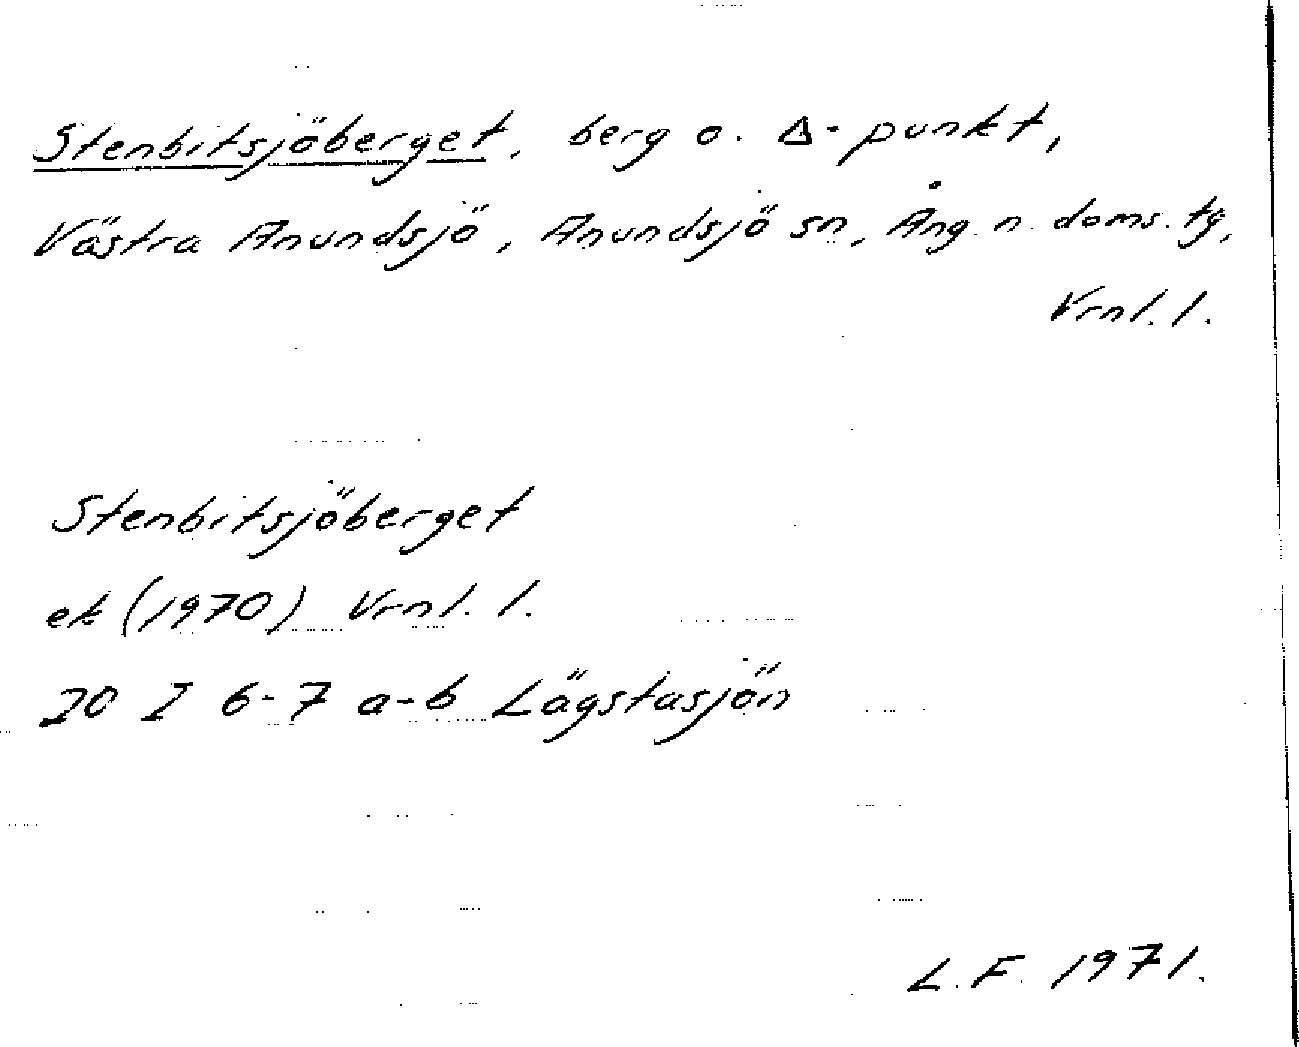 Stenbitsjöberget, berg o. Δ-punkt,
Västra Anundsjö, Anundsjö sn, Ång. n. doms. tg,
Vrnl. l.
Stenbitsjöberget
ek (1970) Vrnl. l.
20 I 6-7 a-b Lägstasjön
L.F. 1971.